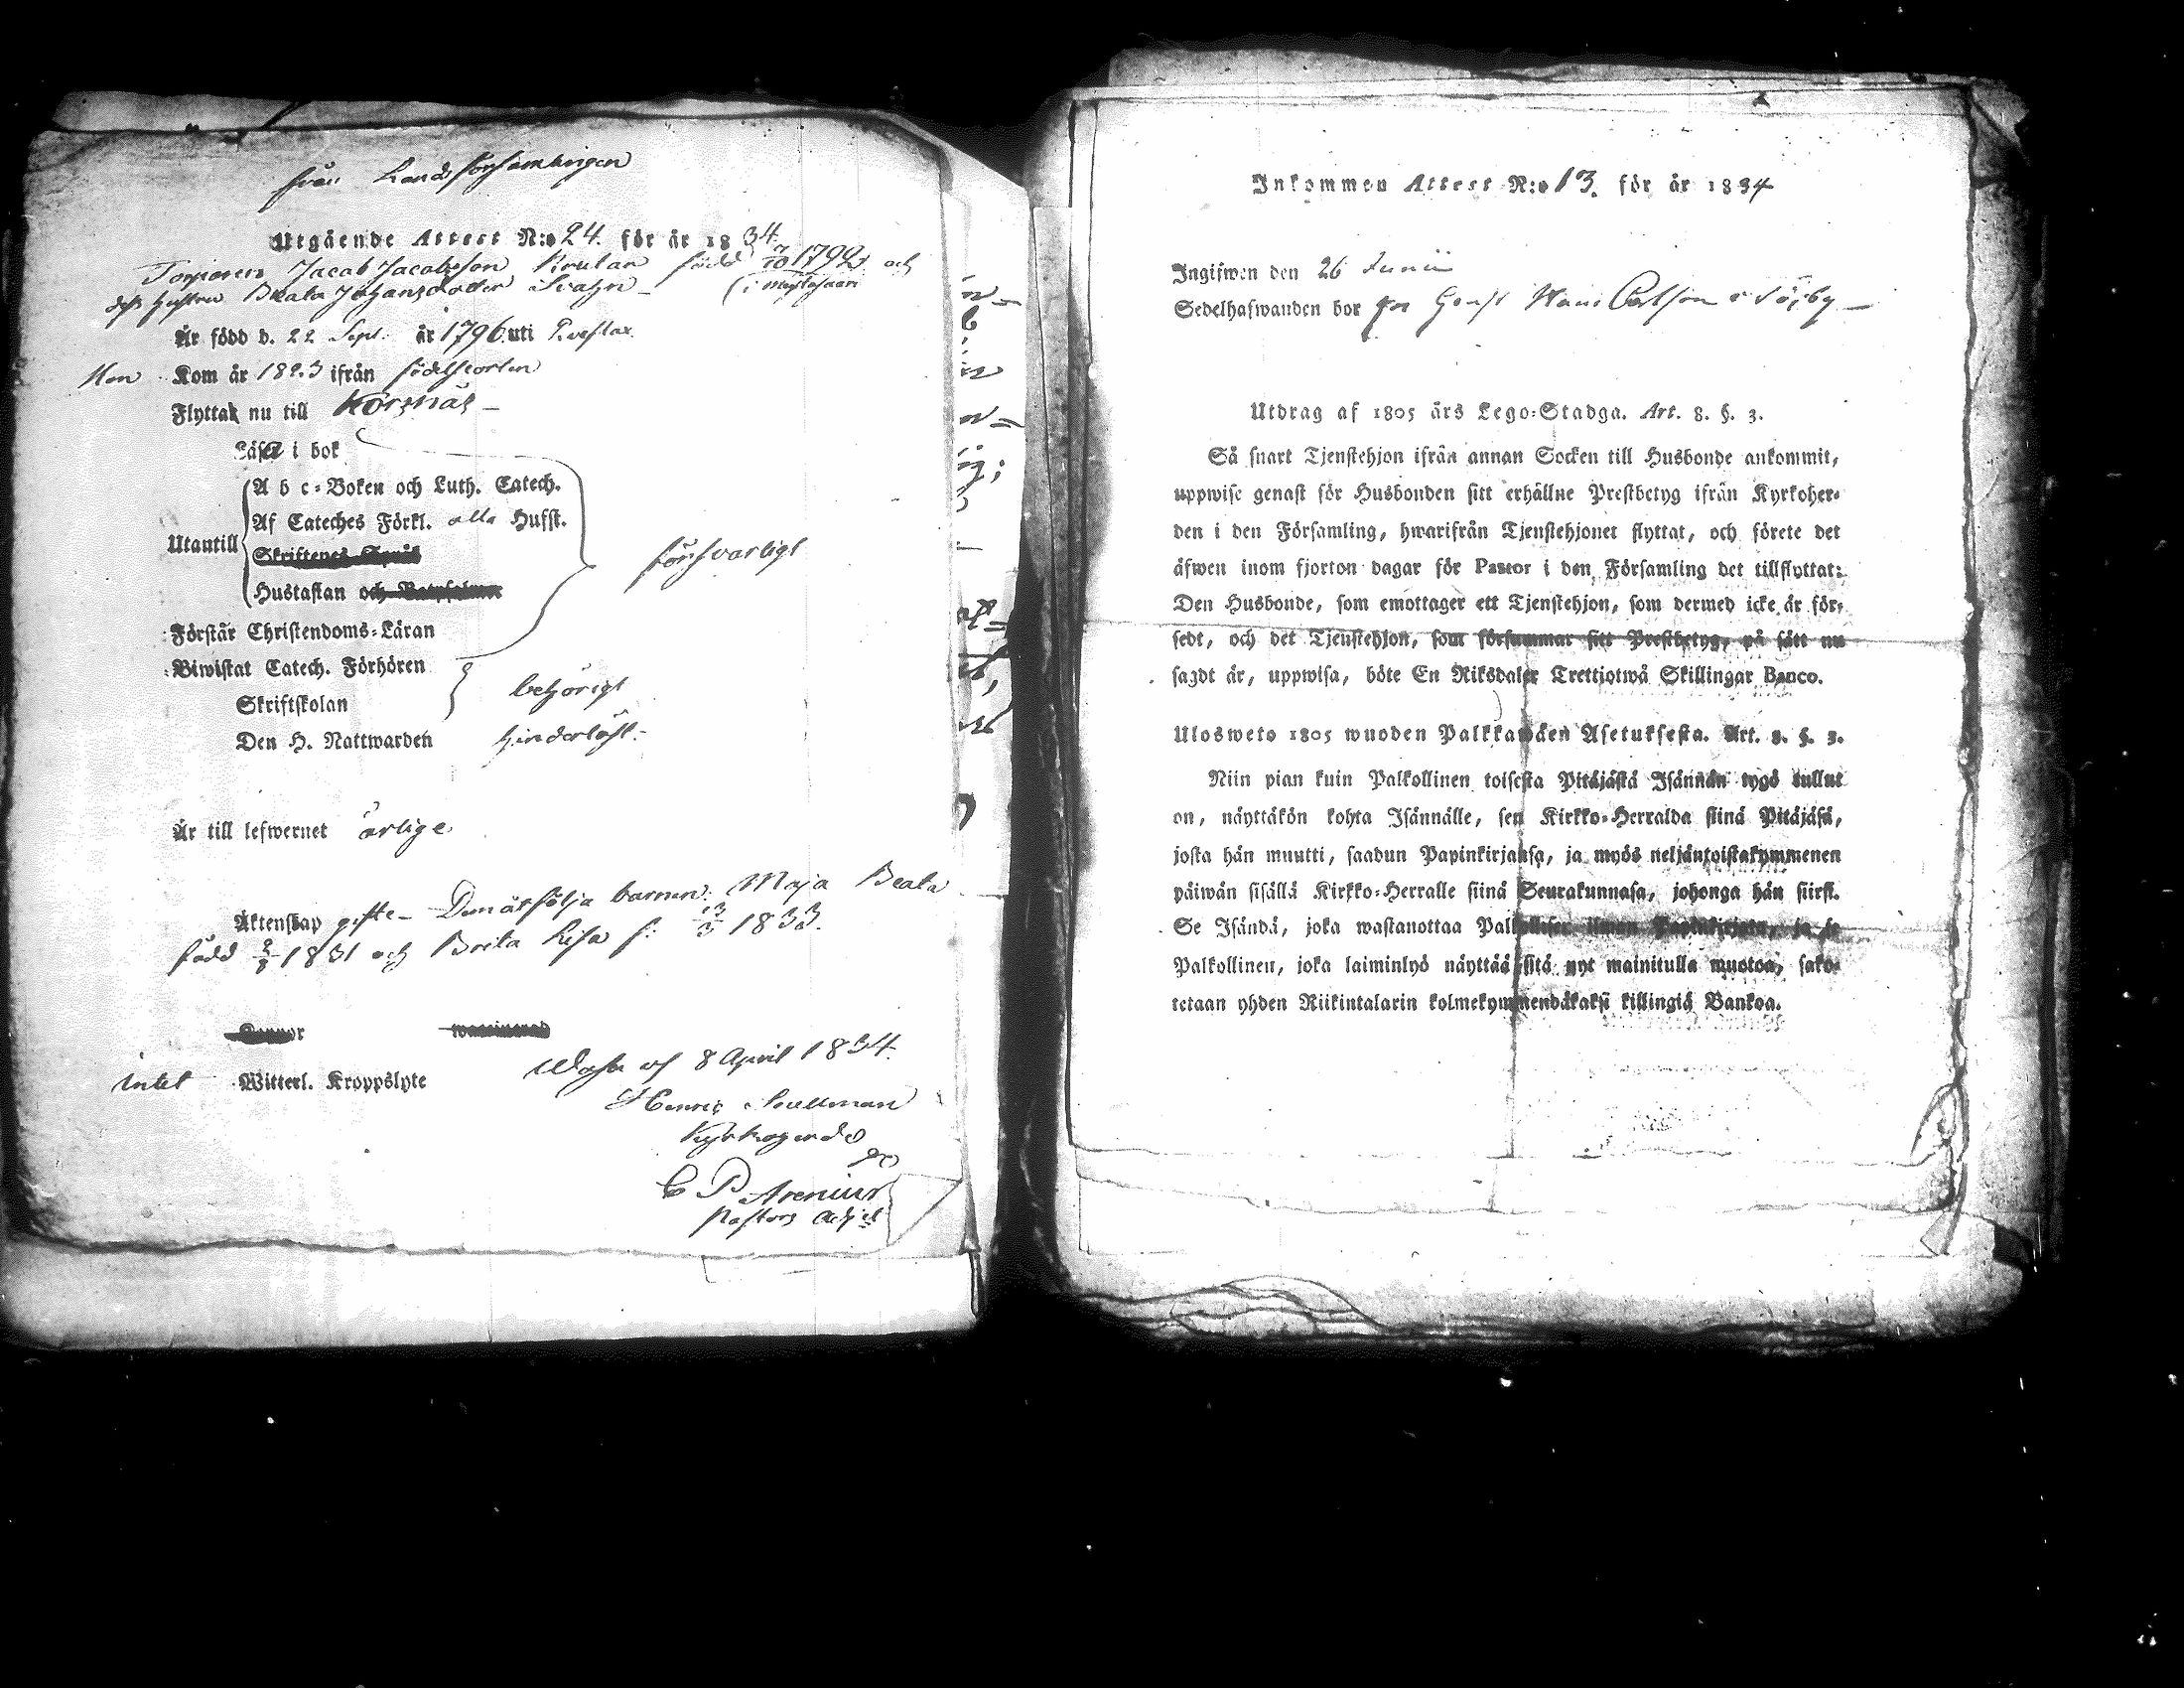 från Landsförsamlingen
Utgående Attest N:o 24. för år 1834.
Torparen Jacob Jacobsson Krutan född 7/10 1792 och
dess hustru Beata Johansdotter (i Mustasaari
Är född d. 22 Sept. år 1796 uti
Hon Kom år 1823 ifrån födelseorten
Flytta nu till Korsnäs
Läser i bok
Utantill
A b c-Boken och Luth. Catech.
Af Cateches Förkl. alla Hufst.
Skriftenes Språk
Hustaflan och Botpsalmer
försvarligt
Förstår Christendoms-Läran
Biwistat Catech. Förhören
Skriftskolan behörigt
Den H. Nattwarden hinderlöst.
Är till lefwernet ärlige
Äktenskap gifte - Dem åtfölja barnen: Maja Beata
född 1831 och Brita Lisa f: 1833.
Wasa af 8 April 1834.
intet Witterl. Kroppslyte
Henric
Kyrkoherde
C P Arenius
Pastors Adj:t
Inkommen Attest N:o 13. för år 1834
Ingifwen den 26 Junii
Sedelhafwanden bor Carlsson i Töjby
Utdrag af 1805 års Lego-Stadga. Art. 8. §. 3.
Så snart Tjenstehjon ifrån annan Socken till Husbonde ankommit,
uppwise genast för Husbonden sitt erhållne Prestbetyg ifrån Kyrkoher-
den i den Församling, hwarifrån Tjenstehjonet flyttat, och förete det
äfwen inom fjorton dagar för Pastor i den Församling det tillflyttat:
Den Husbonde, som emottager ett Tjenstehjon, som dermed icke är för-
sedt, och det Tjenstehjon, som försummar sitt Prestbetyg, på sätt nu
sagdt är, uppwisa, böte En Riksdaler Trettjotwå Skillingar Banco.
Ulosweto 1805 wuoden Palkkawäen Asetuksesta. Art. 8. §. 3.
Niin pian kuin Palkollinen toisesta Pitäjästä Isännän tygö tullut
on, näyttäkön kohta Isännälle, sen Kirkko-Herralda siinä Pitäjäsä,
josta hän muutti, saadun Papinkirjansa, ja myös neljäntoistakymmenen
päiwän sisällä Kirkko-Herralle siinä Seurakunnasa, johonga hän siirst.
Se Isändä, joka wastanottaa Palkollisen ilman Papinkirjata, ja se
Palkollinen, joka laiminlyö näyttää sitä nyt mainitulla muotoa, sako-
tetaan yhden Riikintalarin kolmekymmendäkaksi killingiä Bankoa.